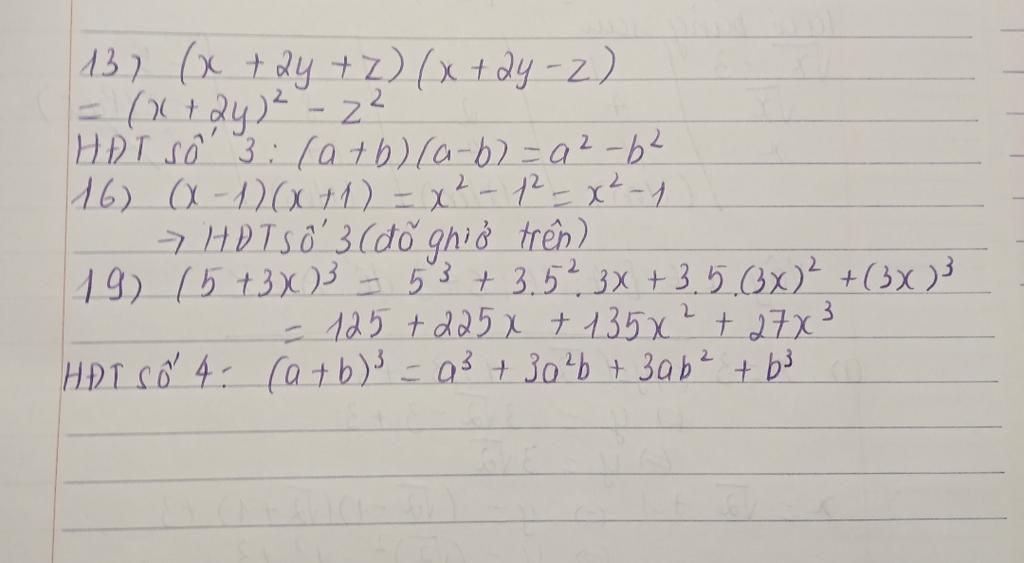 13) (x + 2y + z) (x + 2y - z)
= (x + 2y)² - z²
HĐT số 3: (a+b)(a-b) = a² - b²
16) (x-1)(x+1) = x² - 1² = x² - 1
→ HĐT số 3 (đã ghi ở trên)
19) (5 + 3x)³ = 5³ + 3.5².3x + 3.5.(3x)² + (3x)³
= 125 + 225x + 135x² + 27x³
HĐT số 4: (a+b)³ = a³ + 3a²b + 3ab² + b³